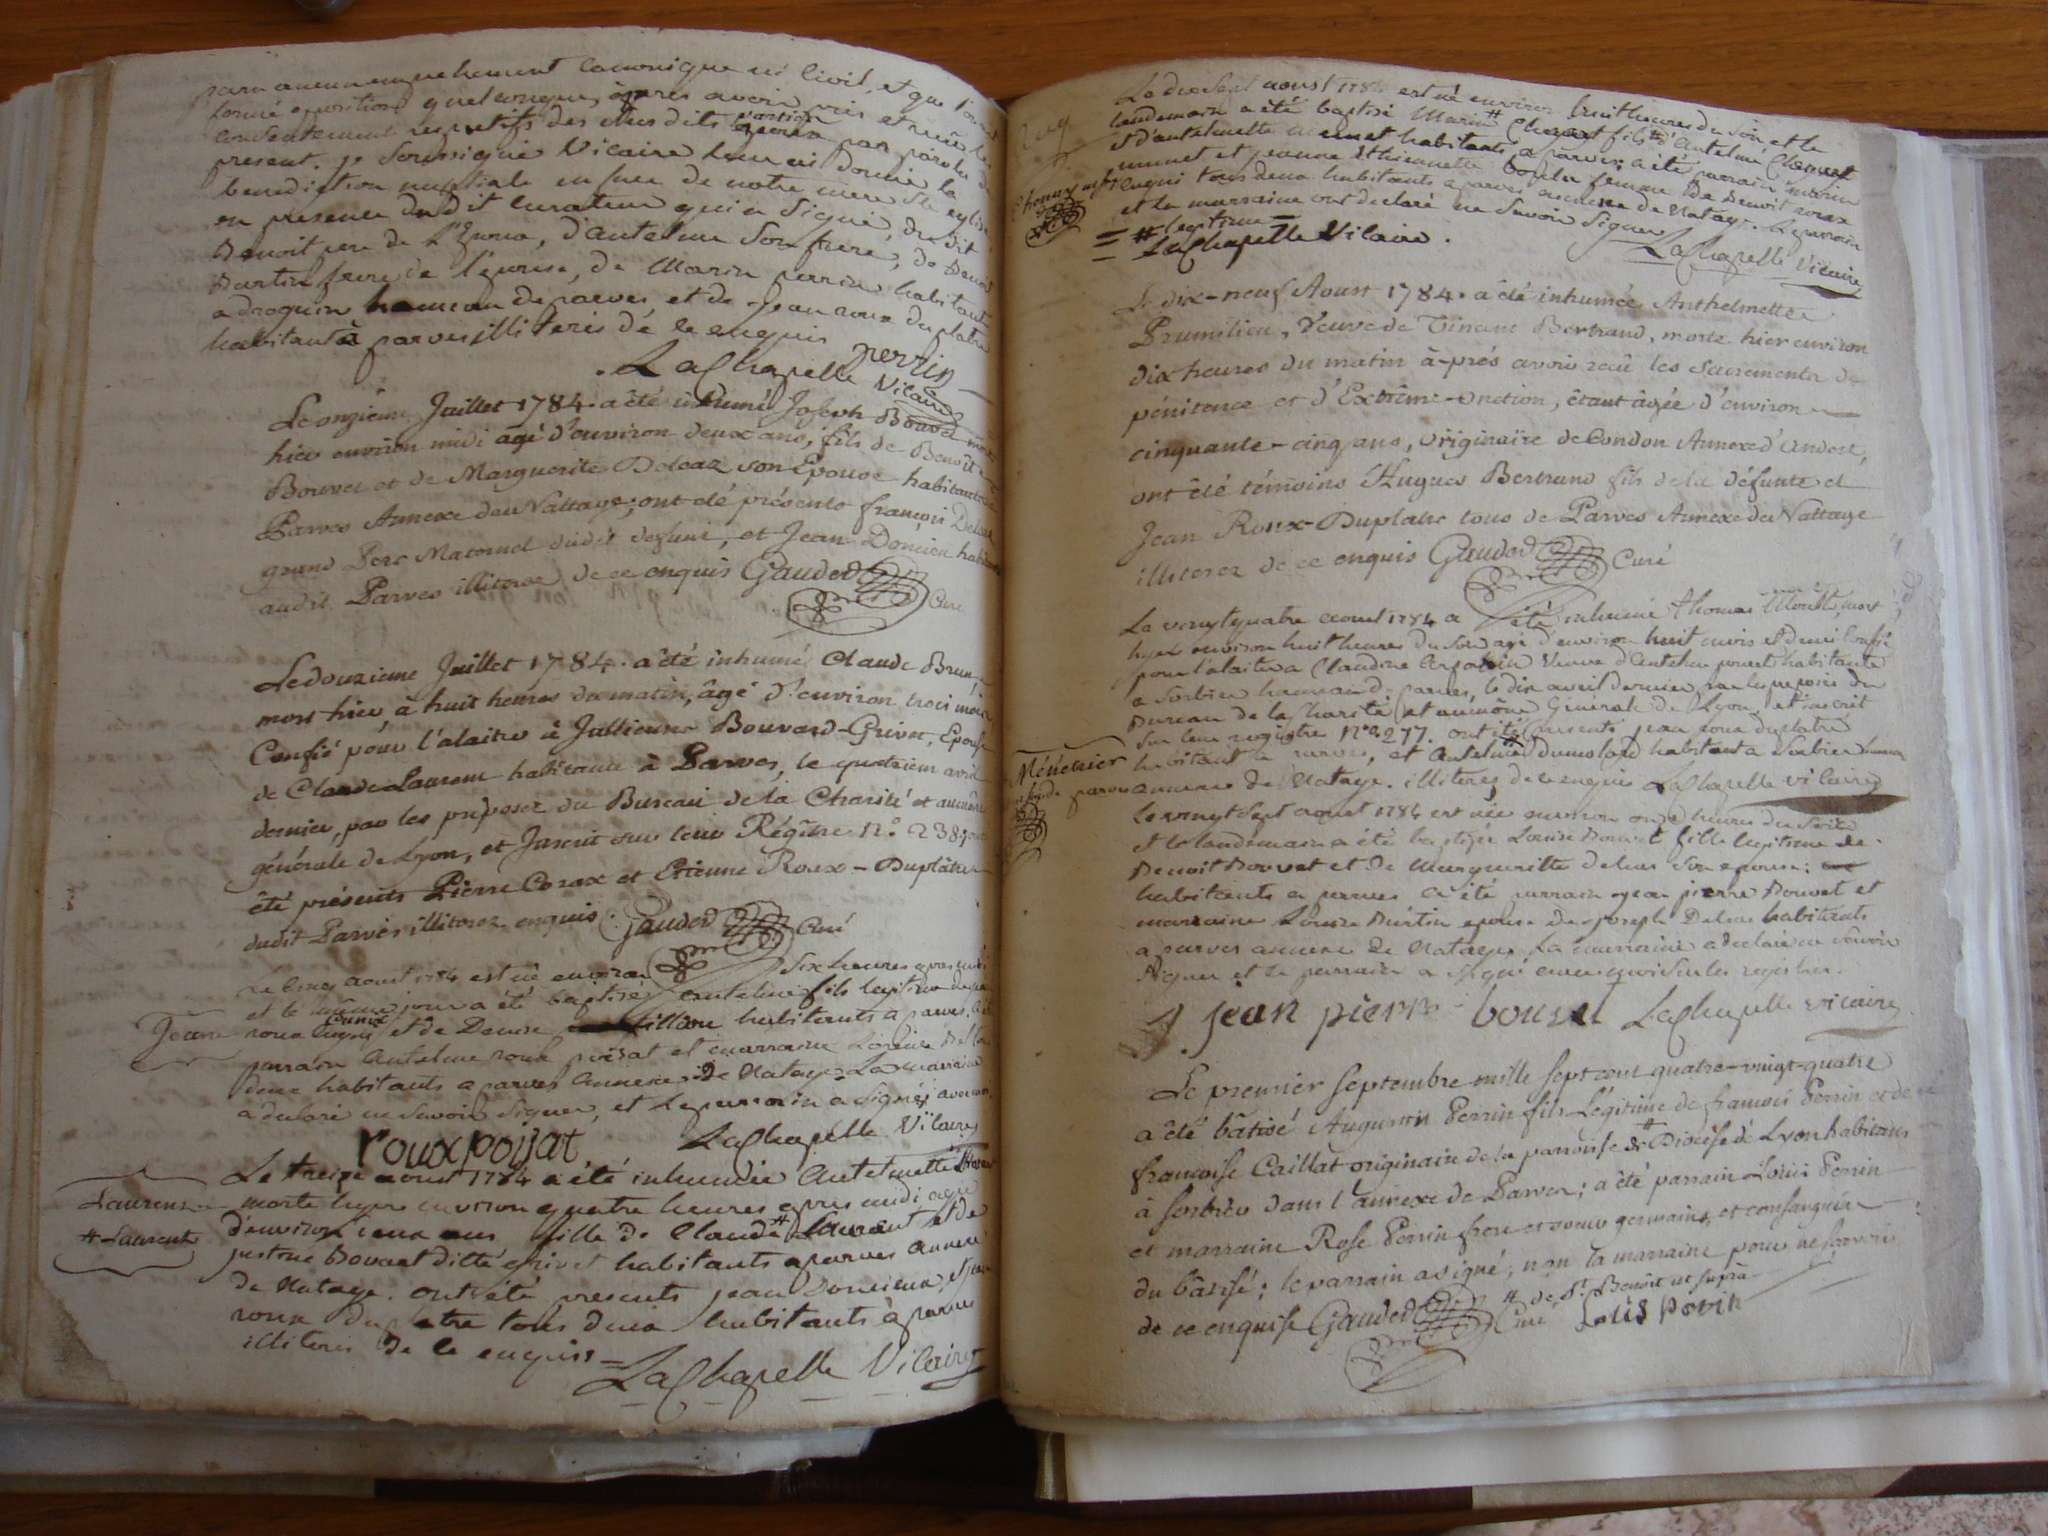 canonique ni civil, et que
quelconque, après avoir
consentement des dits par parole de
present, je soussigné Vicaire leur ai donné la
benediction nuptiale en face de notre mere Ste eglise
en presence dudit curateur qui a signé, dudit
Benoit pere de l'Epoux, d'antelme son frere, de Benoit
Martin frere de l'epouse, de Marin perrin habitant
hameau de parves et de Jean roux du platre
habitant à parves illiterés de ce enquis
perrin
LaChapelle Vicaire
Le onzieme Juillet 1784. a été inhumé Joseph Bouvet mort
hier environ midi agé d'environ deux ans, fils de Benoît
Bouvet et de Marguerite Deleaz son Epouse habitants à
Parves Annexe de Nattage; ont été présents françois Deleaz
grand Pere Maternel dudit defunt, et Jean Domieu habitants
audit Parves illiterez de ce enquis Gauded Curé
Le douzieme Juillet 1784. a été inhumé Claude Brun,
mort hier, à huit heures du matin, âgé d'environ trois mois
Confié pour l'alaiter à Jullienne Bouvard-Grivet, Epouse
de Claude Laurent habitante à Parves, le quatrieme avril
dernier, par les préposez du Bureau de la Charité et aumône
générale de Lyon, et Inscrit sur leur Régître N.o 238, ont
été présents Pierre Corax et Etienne Roux-Duplâtre
dudit Parves illiterez enquis. Gauded Curé
Le cinq aoust 1784 est né environ six heures apres midi
et le même jour a été baptisé antelme fils legitime de
Jean
roux et de Denise fillion habitants a parves, a été
parrain Antelme roux poisat et marraine
deux habitants a parves annexe de Natage. La marraine
a declaré ne savoir signer, et le parrain a signé avec nous.
roux poisat LaChapelle Vicaire
Le treize aoust 1784 a été inhumée Antelmette #
Laurent
morte hyer environ quatre heures apres midi agée
# Laurent
d'environ deux ans fille de Claude # Laurent et de
Bouvart ditte grivet habitants a parves annexe
de Natage. ont été presents jean Domieux, et jean
roux du platre tous deux habitants à parves
illiterés de ce enquis = LaChapelle Vicaire
Le dix sept aoust 1784 est né environ huit heures du soir et le
lendemain a été baptisé Marin # Chenest fils # d'antelme Chenest
et d'antelmette menet habitants a parves; a été parrain marin
munet et jeanne Ethiennette femme de Benoit roux
tous deux habitants a parves annexe de Natage. Le parrain
et la marraine ont declaré ne savoir signer LaChapelle Vicaire
= # legitime =
= LaChapelle Vicaire.
Le dix-neuf Aoust 1784. a été inhumée Anthelmette
Prumilieu, Veuve de Vincent Bertrand, morte hier environ
dix heures du matin à-prés avoir reçû les sacrements de
pénitence et d'Extrême-onction, étant âgée d'environ
cinquante-cinq ans, originaire de Condon Annexe d'andert,
ont été témoins Hugues Bertrand fils de la défunte et
Jean Roux-Duplatre tous de Parves Annexe de Nattage
illiterez de ce enquis Gauded Curé
Le vingt quatre aoust 1784 a été inhumé thomas mort
hyer environ huit heures du soir agé d'environ huit mois et demi Confié
pour l'alaiter a Claudine veuve d'antelme habitante
a Sorbier hameau de parves, le dix avril dernier par les preposés du
Bureau de la Charité et aumône Generale de Lyon, et inscrit
sur leur registre N.o 277. ont été presents jean roux duplatre
habitant a parves, et Antelme Dumolard habitant a Sorbier hameau
Ménetrier
annexe de Natage. illiterez de ce enquis LaChapelle Vicaire
le vingt sept aoust 1784 est née environ onze heures du soir
et le landemain a été baptisée Louise Bouvet fille legitime de
Benoit Bouvet et de Margueritte deleas son epouse;
habitants a parves a été parrain jean pierre Bouvet et
marraine Louise Martin epouse de joseph Deleas habitants
a parves annexe de Natage. La marraine a declaré ne savoir
signer et le parrain a signé avec moi sur les registres.
jean pierre bouvet LaChapelle vicaire
Le premier septembre mille sept cent quatre-vingt-quatre
a été bâtisé Augustin Perrin fils Légitime de françois Perrin et de
françoise Caillat originaire de la parroisse # Diocèse de Lyon habitans
à sorbier dans l'annexe de Parves; a été parrain Louis Perrin
et marraine Rose Perrin frere et soeur germains, et consanguins
du bâtisé; le parrain a signé, non la marraine pour ne sçavoir
de ce enquise Gauded Curé # de St. Benoît ut suprà
Louis perin